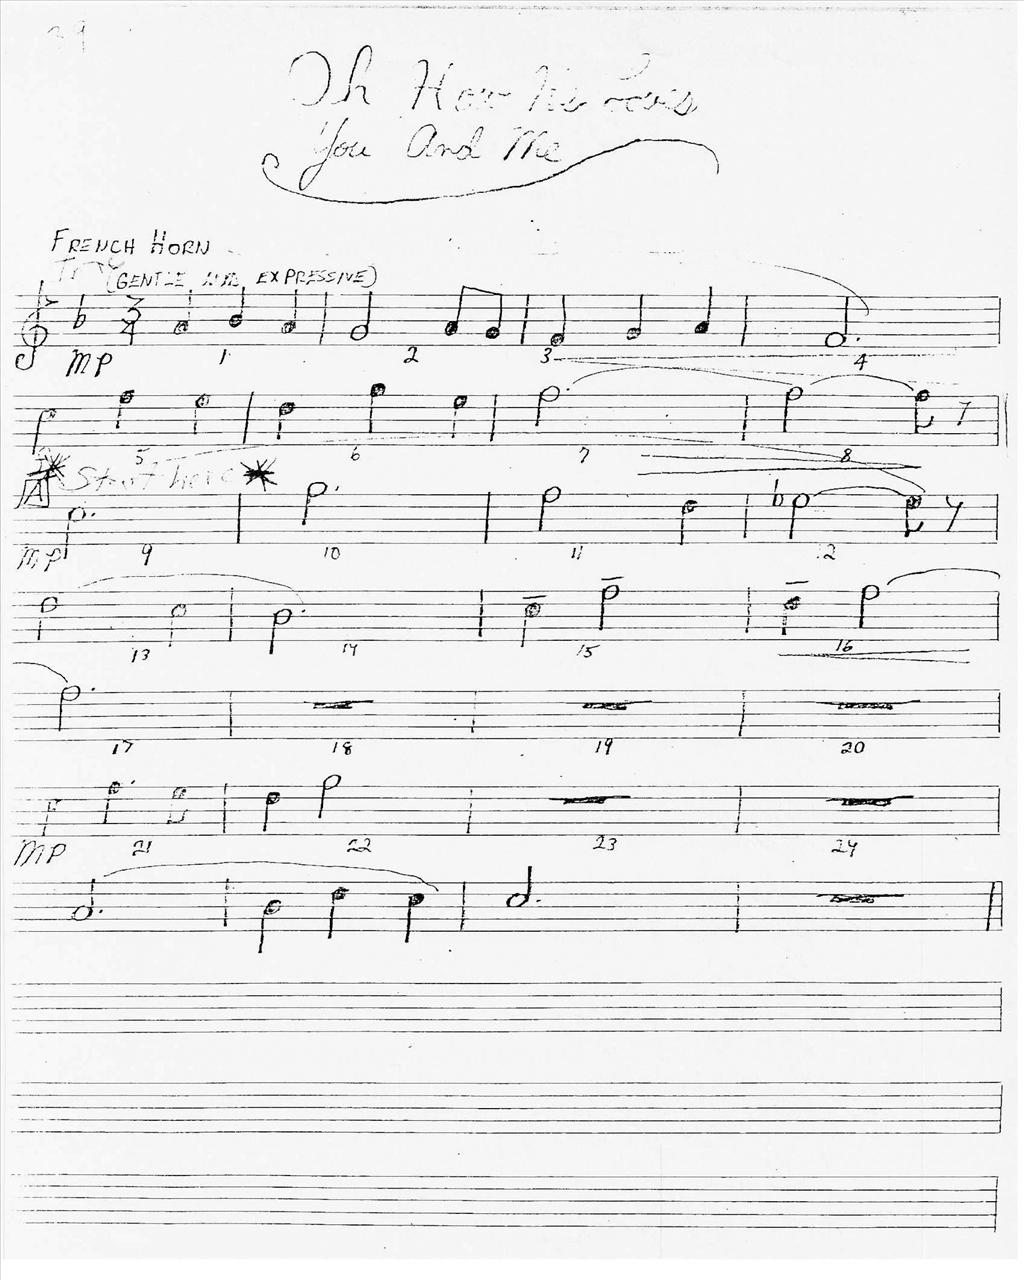 39
Oh How He Loves
You And Me
FRENCH HORN
(GENTLE AND EXPRESSIVE)
3
4
MP 1 2 3 4
5 6 7 8
A Start here
MP 9 10 11 12
13 14 15 16
17 18 19 20
MP 21 22 23 24